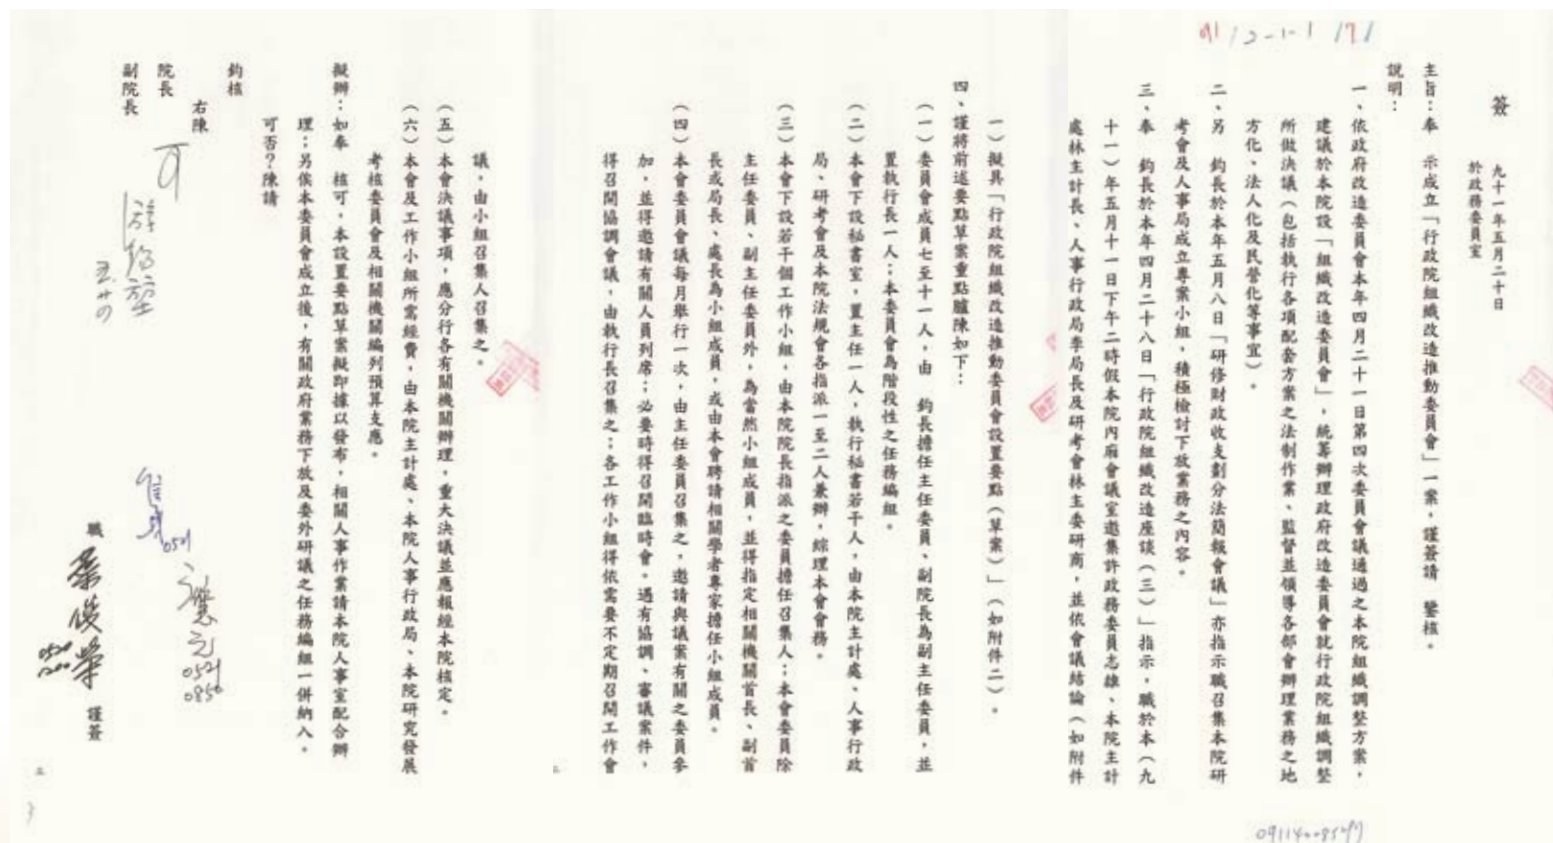 91 12-1-1 171
簽
九十一年五月二十日
於政務委員室
主旨：奉　示成立「行政院組織改造推動委員會」一案，謹簽請　鑒核。
說明：
一、依政府改造委員會本年四月二十一日第四次委員會議通過之本院組織調整方案，
建議於本院設「組織改造委員會」，統籌辦理政府改造委員會就行政院組織調整
所做決議（包括執行各項配套方案之法制作業、監督並領導各部會辦理業務之地
方化、法人化及民營化等事宜）。
二、另　鈞長於本年五月八日「研修財政收支劃分法簡報會議」亦指示職召集本院研
考會及人事局成立專案小組，積極檢討下放業務之內容。
三、奉　鈞長於本年四月二十八日「行政院組織改造座談（三）」指示，職於本（九
十一）年五月十一日下午二時假本院內廂會議室邀集許政務委員志雄、本院主計
處林主計長、人事行政局李局長及研考會林主委研商，並依會議結論（如附件
一）擬具「行政院組織改造推動委員會設置要點（草案）」（如附件二）。
四、謹將前述要點草案重點臚陳如下：
（一）委員會成員七至十一人，由　鈞長擔任主任委員、副院長為副主任委員，並
置執行長一人；本委員會為階段性之任務編組。
（二）本會下設秘書室，置主任一人，執行秘書若干人，由本院主計處、人事行政
局、研考會及本院法規會各指派一至二人兼辦，綜理本會會務。
（三）本會下設若干個工作小組，由本院院長指派之委員擔任召集人；本會委員除
主任委員、副主任委員外，為當然小組成員，並得指定相關機關首長、副首
長或局長、處長為小組成員，或由本會聘請相關學者專家擔任小組成員。
（四）本會委員會議每月舉行一次，由主任委員召集之，邀請與議案有關之委員參
加，並得邀請有關人員列席；必要時得召開臨時會。遇有協調、審議案件，
得召開協調會議，由執行長召集之；各工作小組得依需要不定期召開工作會
議，由小組召集人召集之。
（五）本會決議事項，應分行各有關機關辦理，重大決議並應報經本院核定。
（六）本會及工作小組所需經費，由本院主計處、本院人事行政局、本院研究發展
考核委員會及相關機關編列預算支應。
擬辦：如奉　核可，本設置要點草案擬即據以發布，相關人事作業請本院人事室配合辦
理；另俟本委員會成立後，有關政府業務下放及委外研議之任務編組一併納入。
可否？陳請
鈞核
右陳
院長
副院長
可
游錫堃
0521
0521
0850
職
葉俊榮
0520
謹簽
二